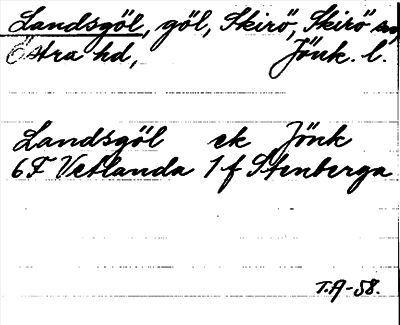 Landsgöl, göl, Skirö, Skirö sn,
Östra hd, Jönk. l.
Landsgöl ek Jönk
6F Vetlanda 1 f Stenberga
T.A-58.